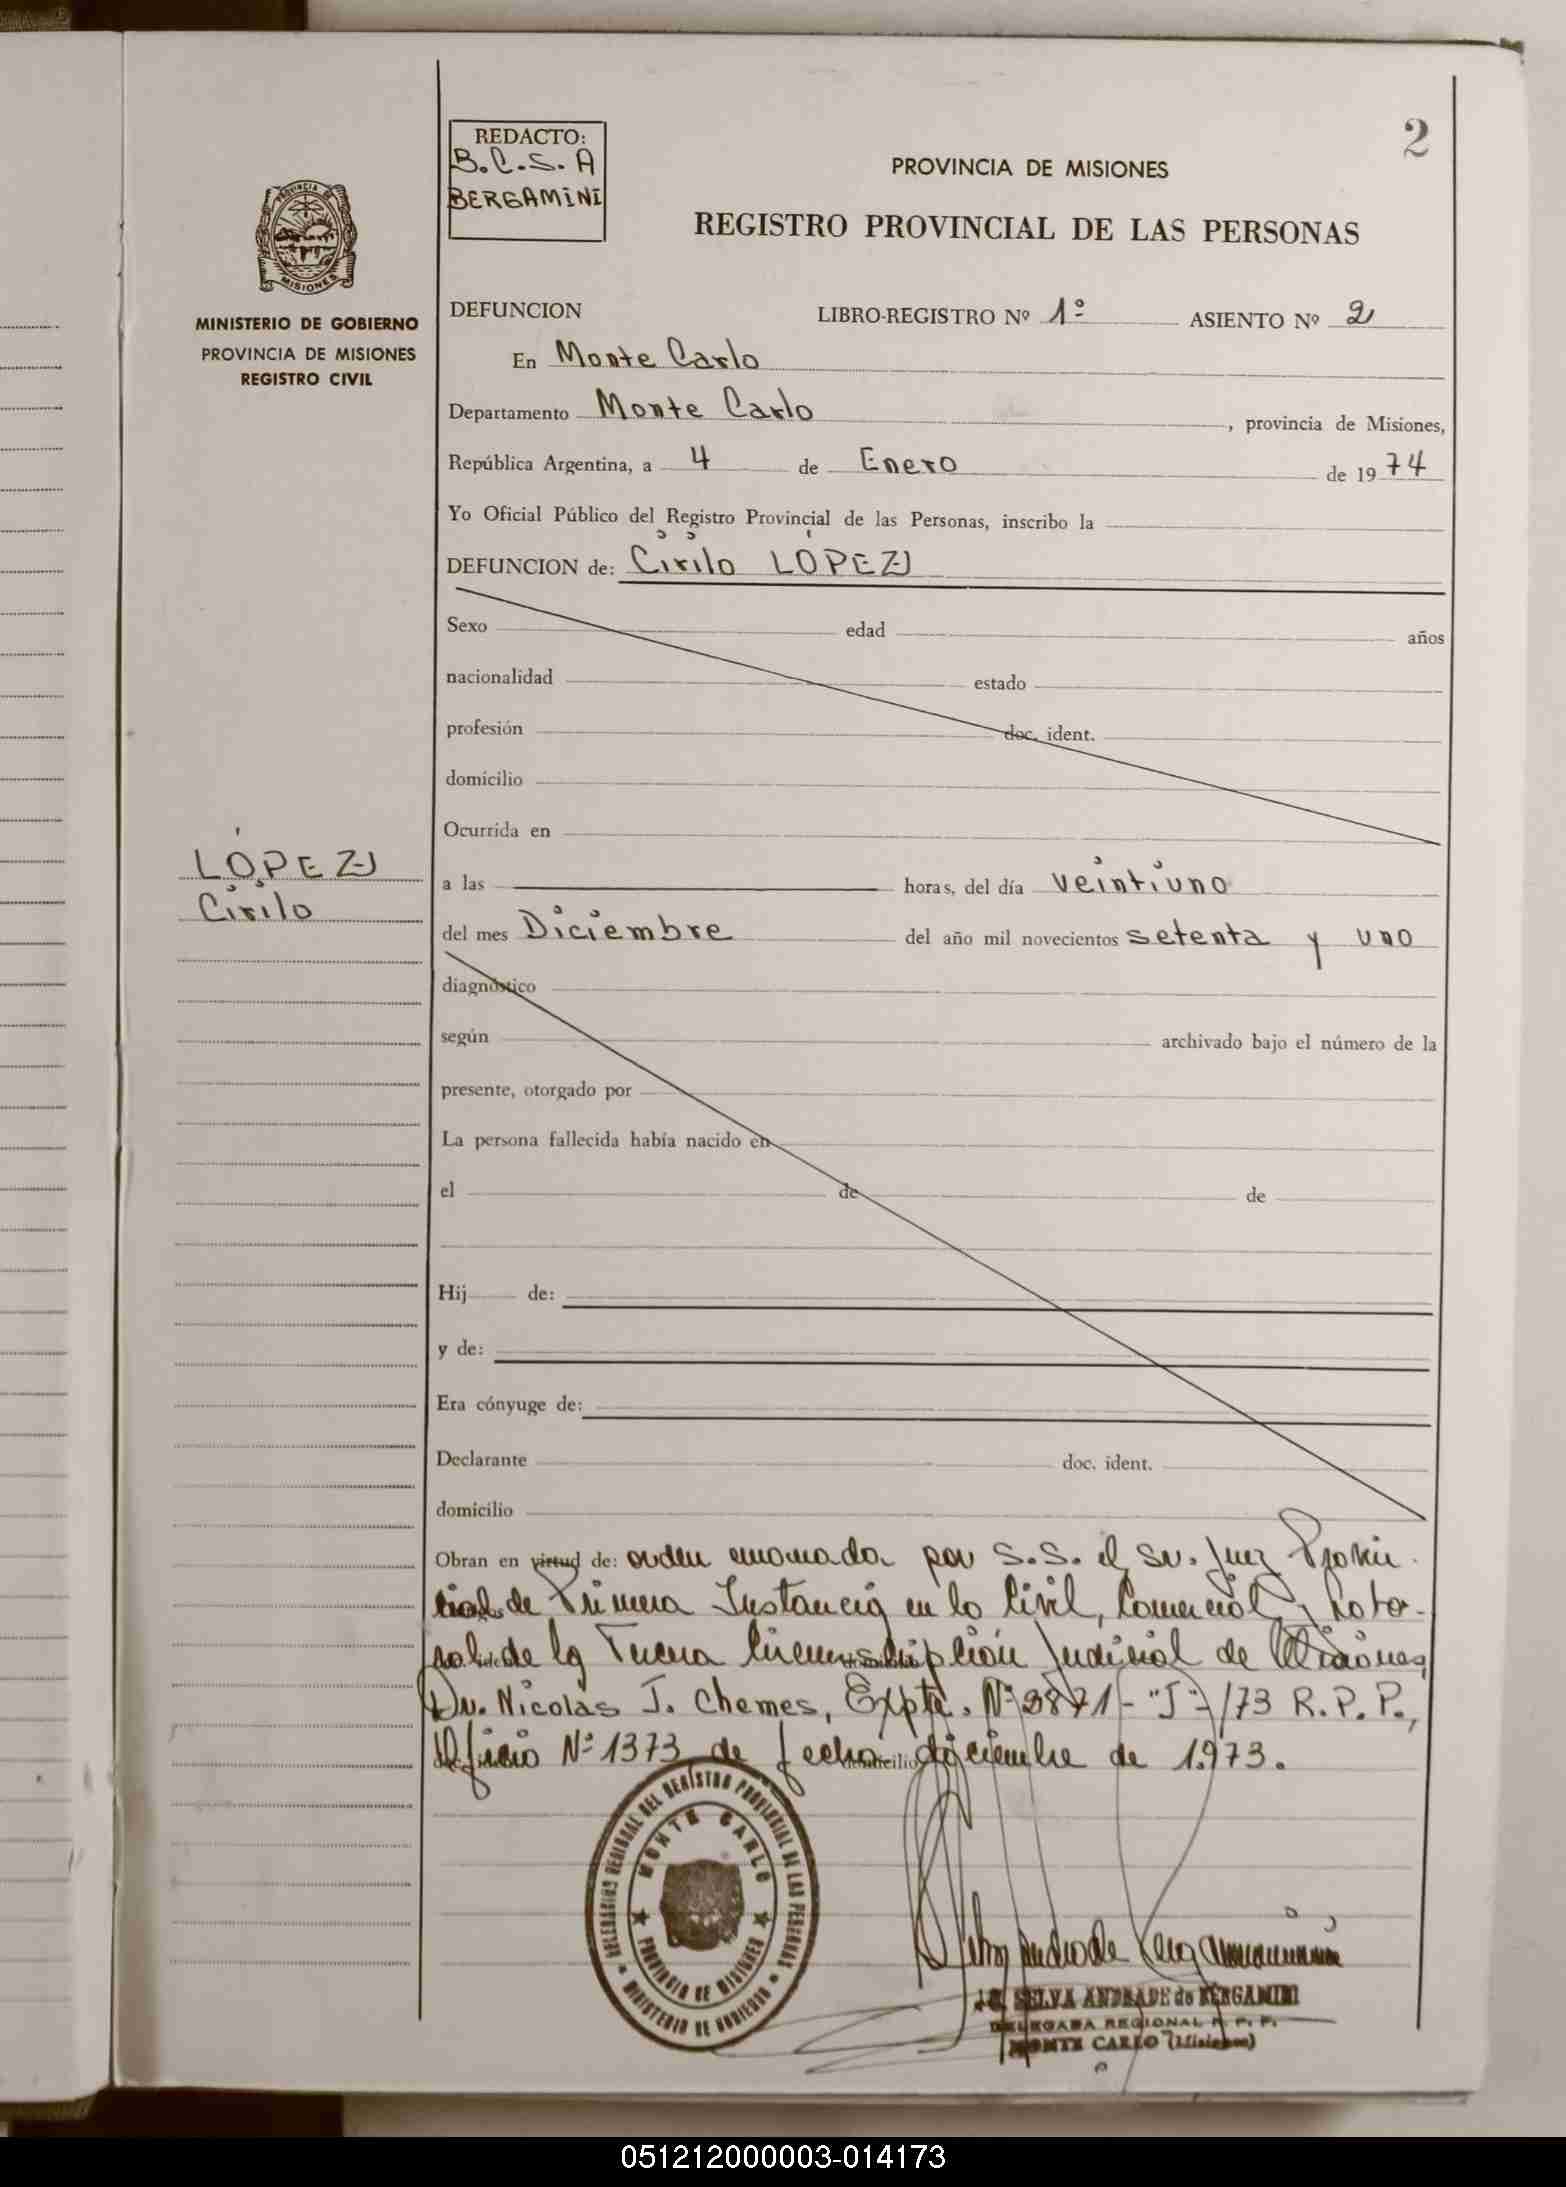 2
REDACTO:
B.C.S.A
BERGAMINI
PROVINCIA DE MISIONES
REGISTRO PROVINCIAL DE LAS PERSONAS
MISIONES
MINISTERIO DE GOBIERNO
PROVINCIA DE MISIONES
REGISTRO CIVIL
DEFUNCION LIBRO-REGISTRO Nº 1º ASIENTO Nº 2
En Monte Carlo
Departamento Monte Carlo, provincia de Misiones,
República Argentina, a 4 de Enero de 1974
Yo Oficial Público del Registro Provincial de las Personas, inscribo la
DEFUNCION de: Cirilo LÓPEZ
Sexo edad años
nacionalidad estado
profesión doc. ident.
domicilio
Ocurrida en
LÓPEZ
Cirilo
a las horas, del día veintiuno
del mes Diciembre del año mil novecientos setenta y uno
diagnóstico
según archivado bajo el número de la
presente, otorgado por
La persona fallecida había nacido en
el de de
Hij de:
y de:
Era cónyuge de:
Declarante doc. ident.
domicilio
Obran en virtud de: orden emanada por S.S. el Sr. Juez Provin-
cial de Primera Instancia en lo Civil, Comercial y
de la Tercera Circunscripción Judicial de Misiones,
Dr. Nicolás J. Chemes, Expte. Nº 3871-"J"-/73 R.P.P.,
Oficio Nº 1373 de fecha diciembre de 1.973.
DELEGACION REGIONAL DEL REGISTRO PROVINCIAL DE LAS PERSONAS
MONTE CARLO
PROVINCIA DE MISIONES
MINISTERIO DE GOBIERNO
SELVA ANDRADE de BERGAMINI
DELEGADA REGIONAL R. P. P.
MONTE CARLO (Misiones)
051212000003-014173